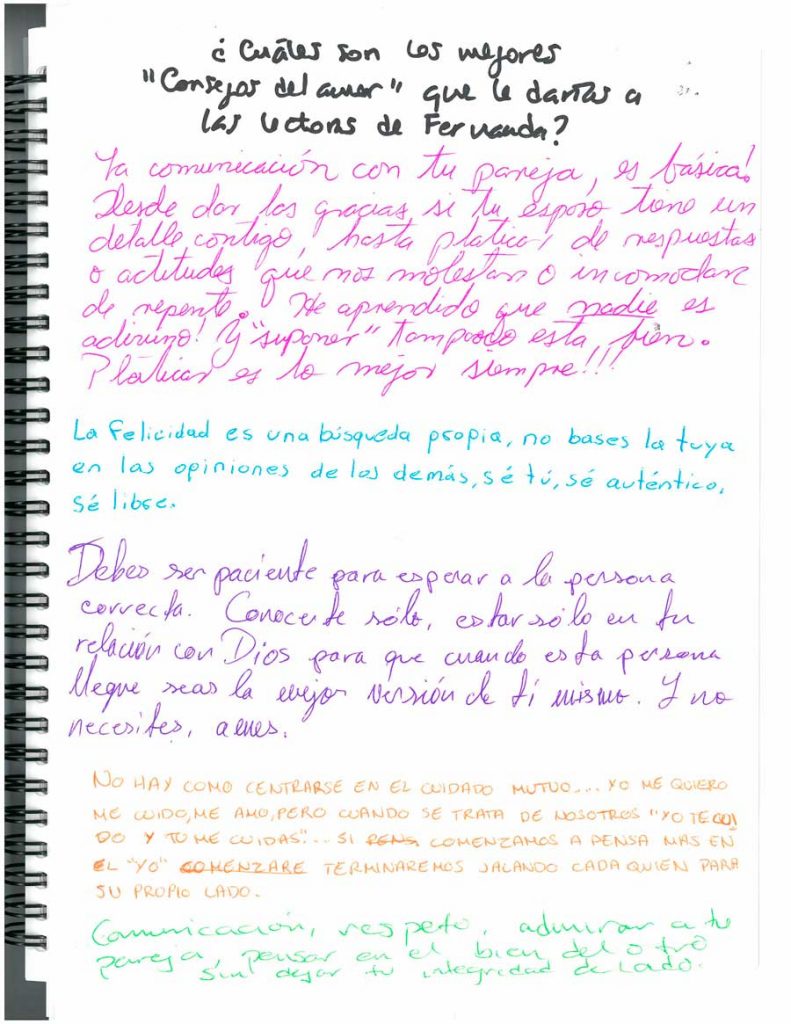 ¿Cuáles son los mejores
"Consejos del amor" que le darías a
las lectoras de Fernanda?
La comunicación con tu pareja, es básica!
Desde dar las gracias, si tu esposo tiene un
detalle contigo, hasta platicar de respuestas
o actitudes que nos molestan o incomodan
de repente. He aprendido que nadie es
adivino! Y "suponer" tampoco esta bien.
Pláticar es lo mejor siempre!!!
La felicidad es una búsqueda propia, no bases la tuya
en las opiniones de los demás, sé tú, sé auténtico,
sé libre.
Debes ser paciente para esperar a la persona
correcta. Conocerte sólo, estar sólo en tu
relación con Dios para que cuando esta persona
llegue seas la mejor versión de ti mismo. Y no
necesites, ames.
NO HAY COMO CENTRARSE EN EL CUIDADO MUTUO... YO ME QUIERO
ME CUIDO, ME AMO, PERO CUANDO SE TRATA DE NOSOTROS "YO TE CUI
DO Y TU ME CUIDAS"... SI PENS COMENZAMOS A PENSA MAS EN
EL "YO" COMENZARE TERMINAREMOS JALANDO CADA QUIEN PARA
SU PROPIO LADO.
Comunicación, respeto, admirar a tu
pareja, pensar en el bien del otro
sin dejar tu integridad de lado.